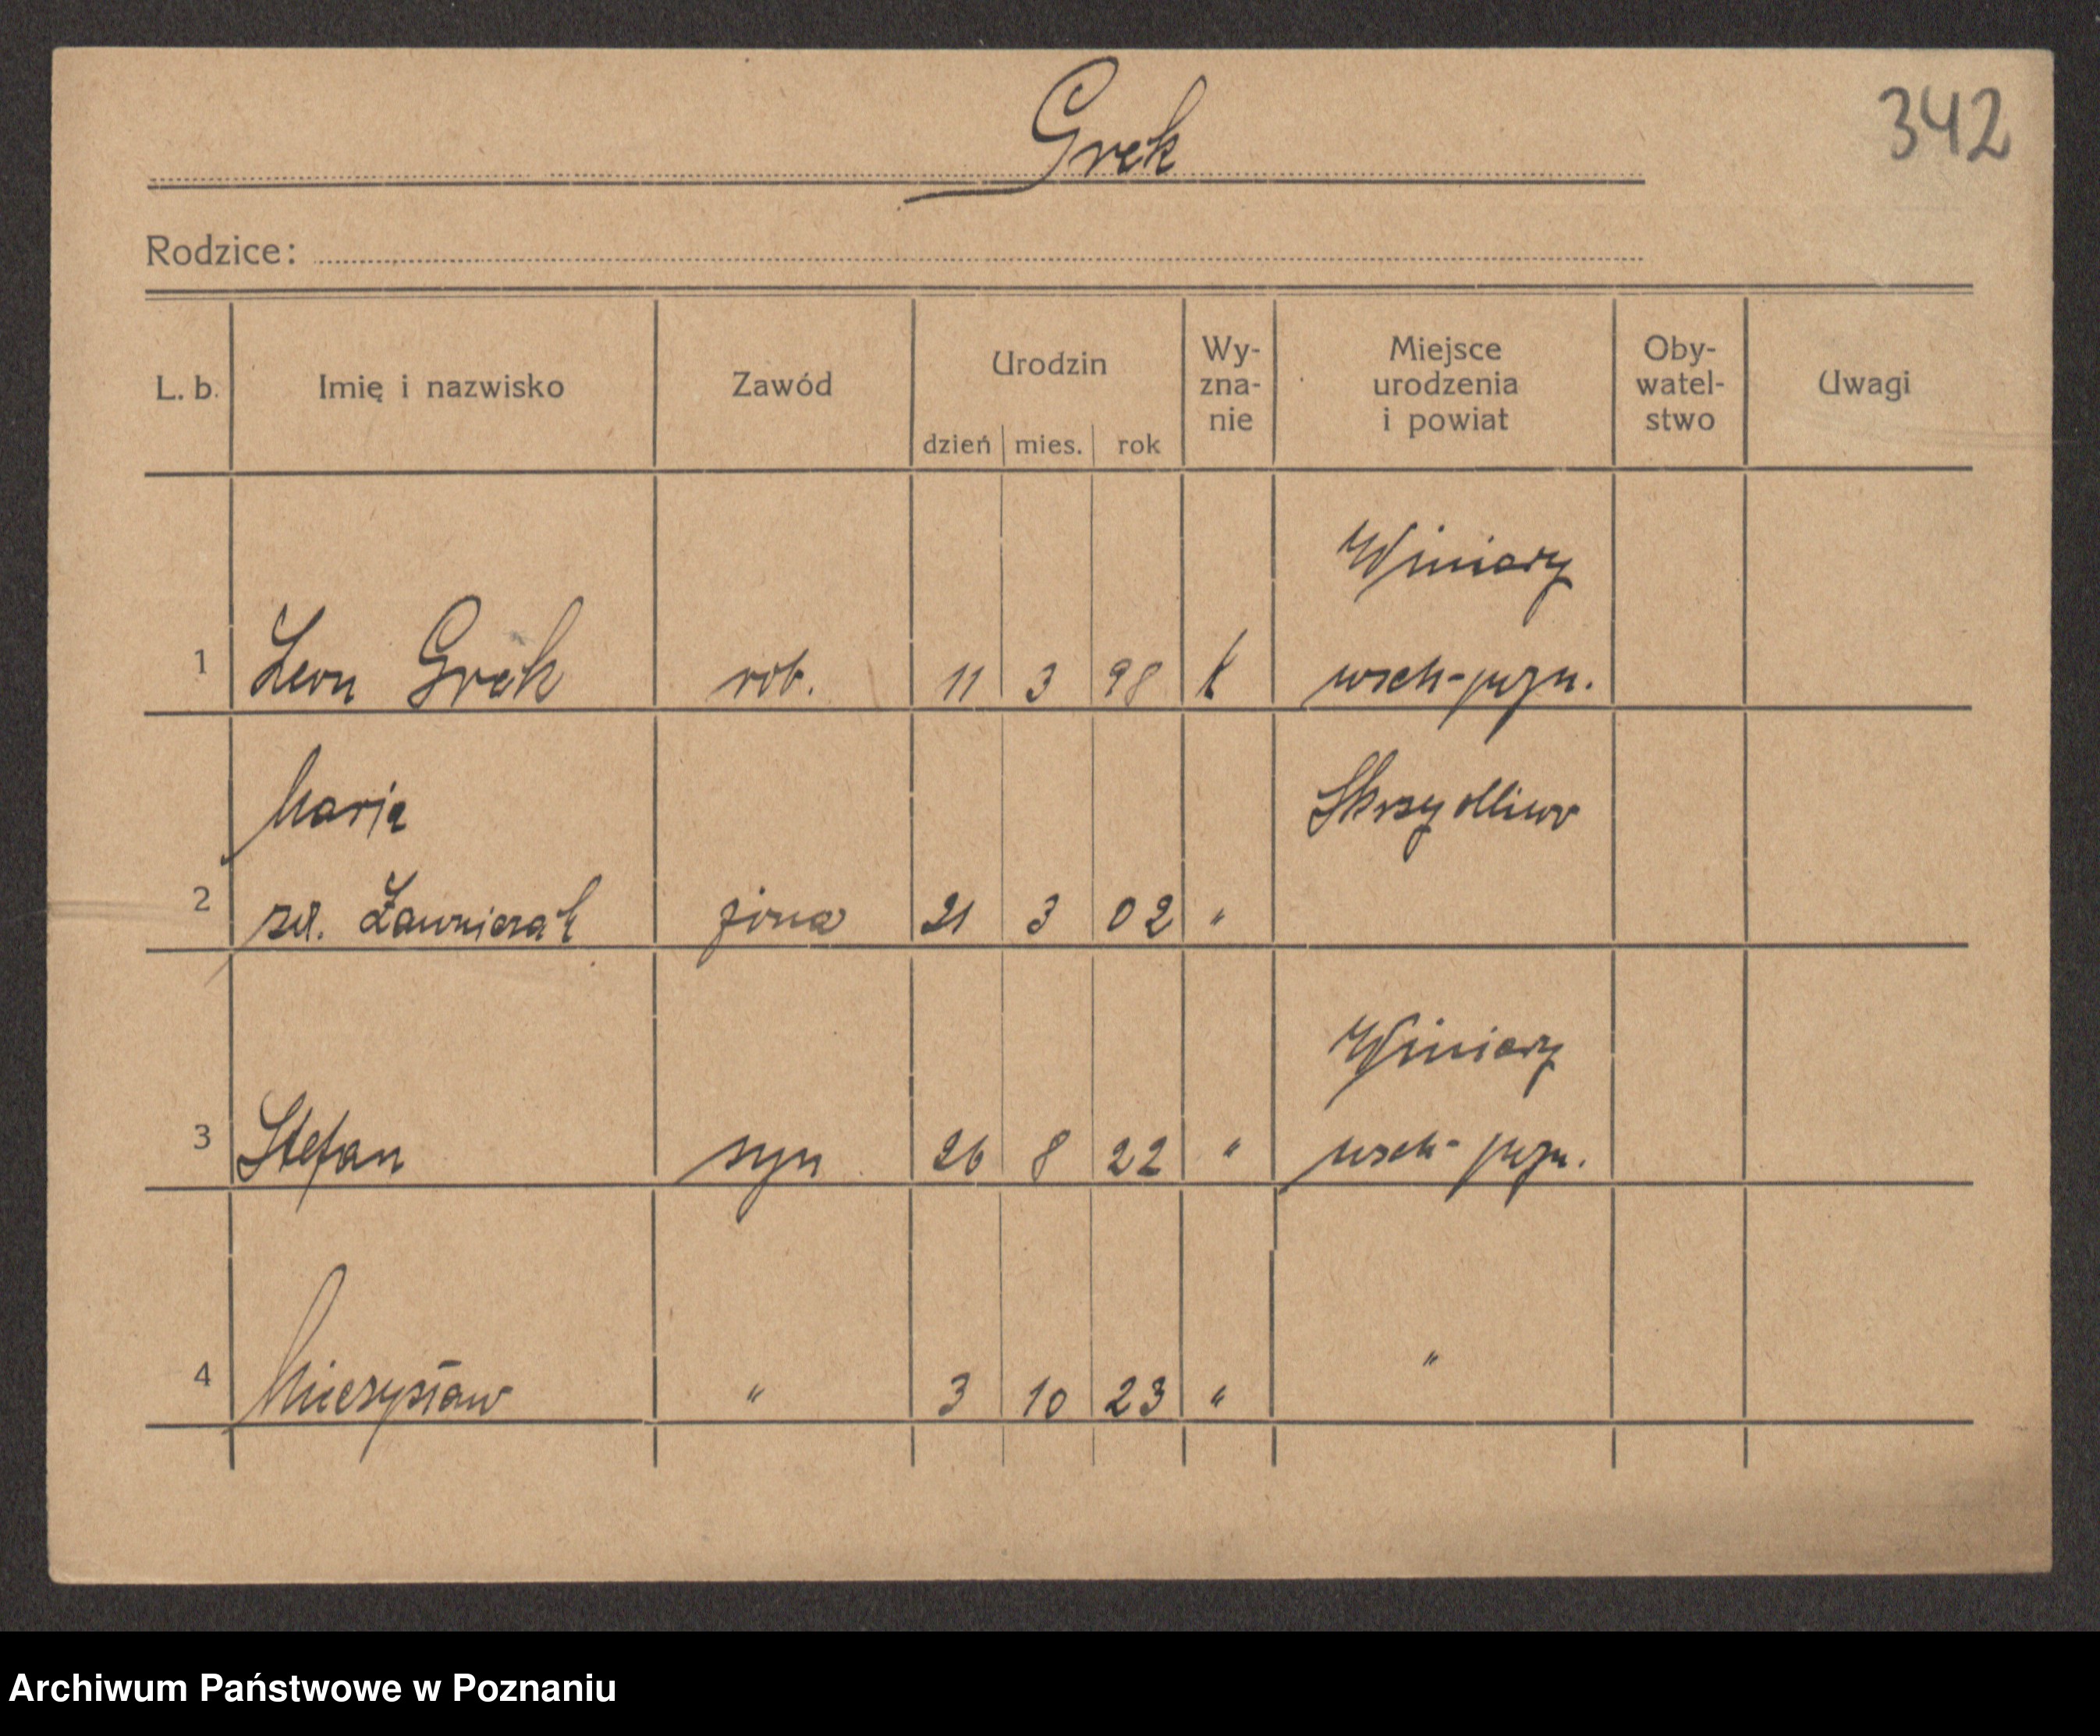 Grek
342
Rodzice:
L. b. Imię i nazwisko Zawód Urodzin dzień mies. rok Wy-zna-nie Miejsce urodzenia i powiat Oby-watel-stwo Uwagi
Winiary
1 Leon Grek rob. 11 3 98 k wsch-pozn.
Marja Skrzydlewo
2 żona 21 3 02 "
Winiary
3 Stefan syn 26 8 22 " wsch-pozn.
4 Mieczysław " 3 10 23 " "
Archiwum Państwowe w Poznaniu